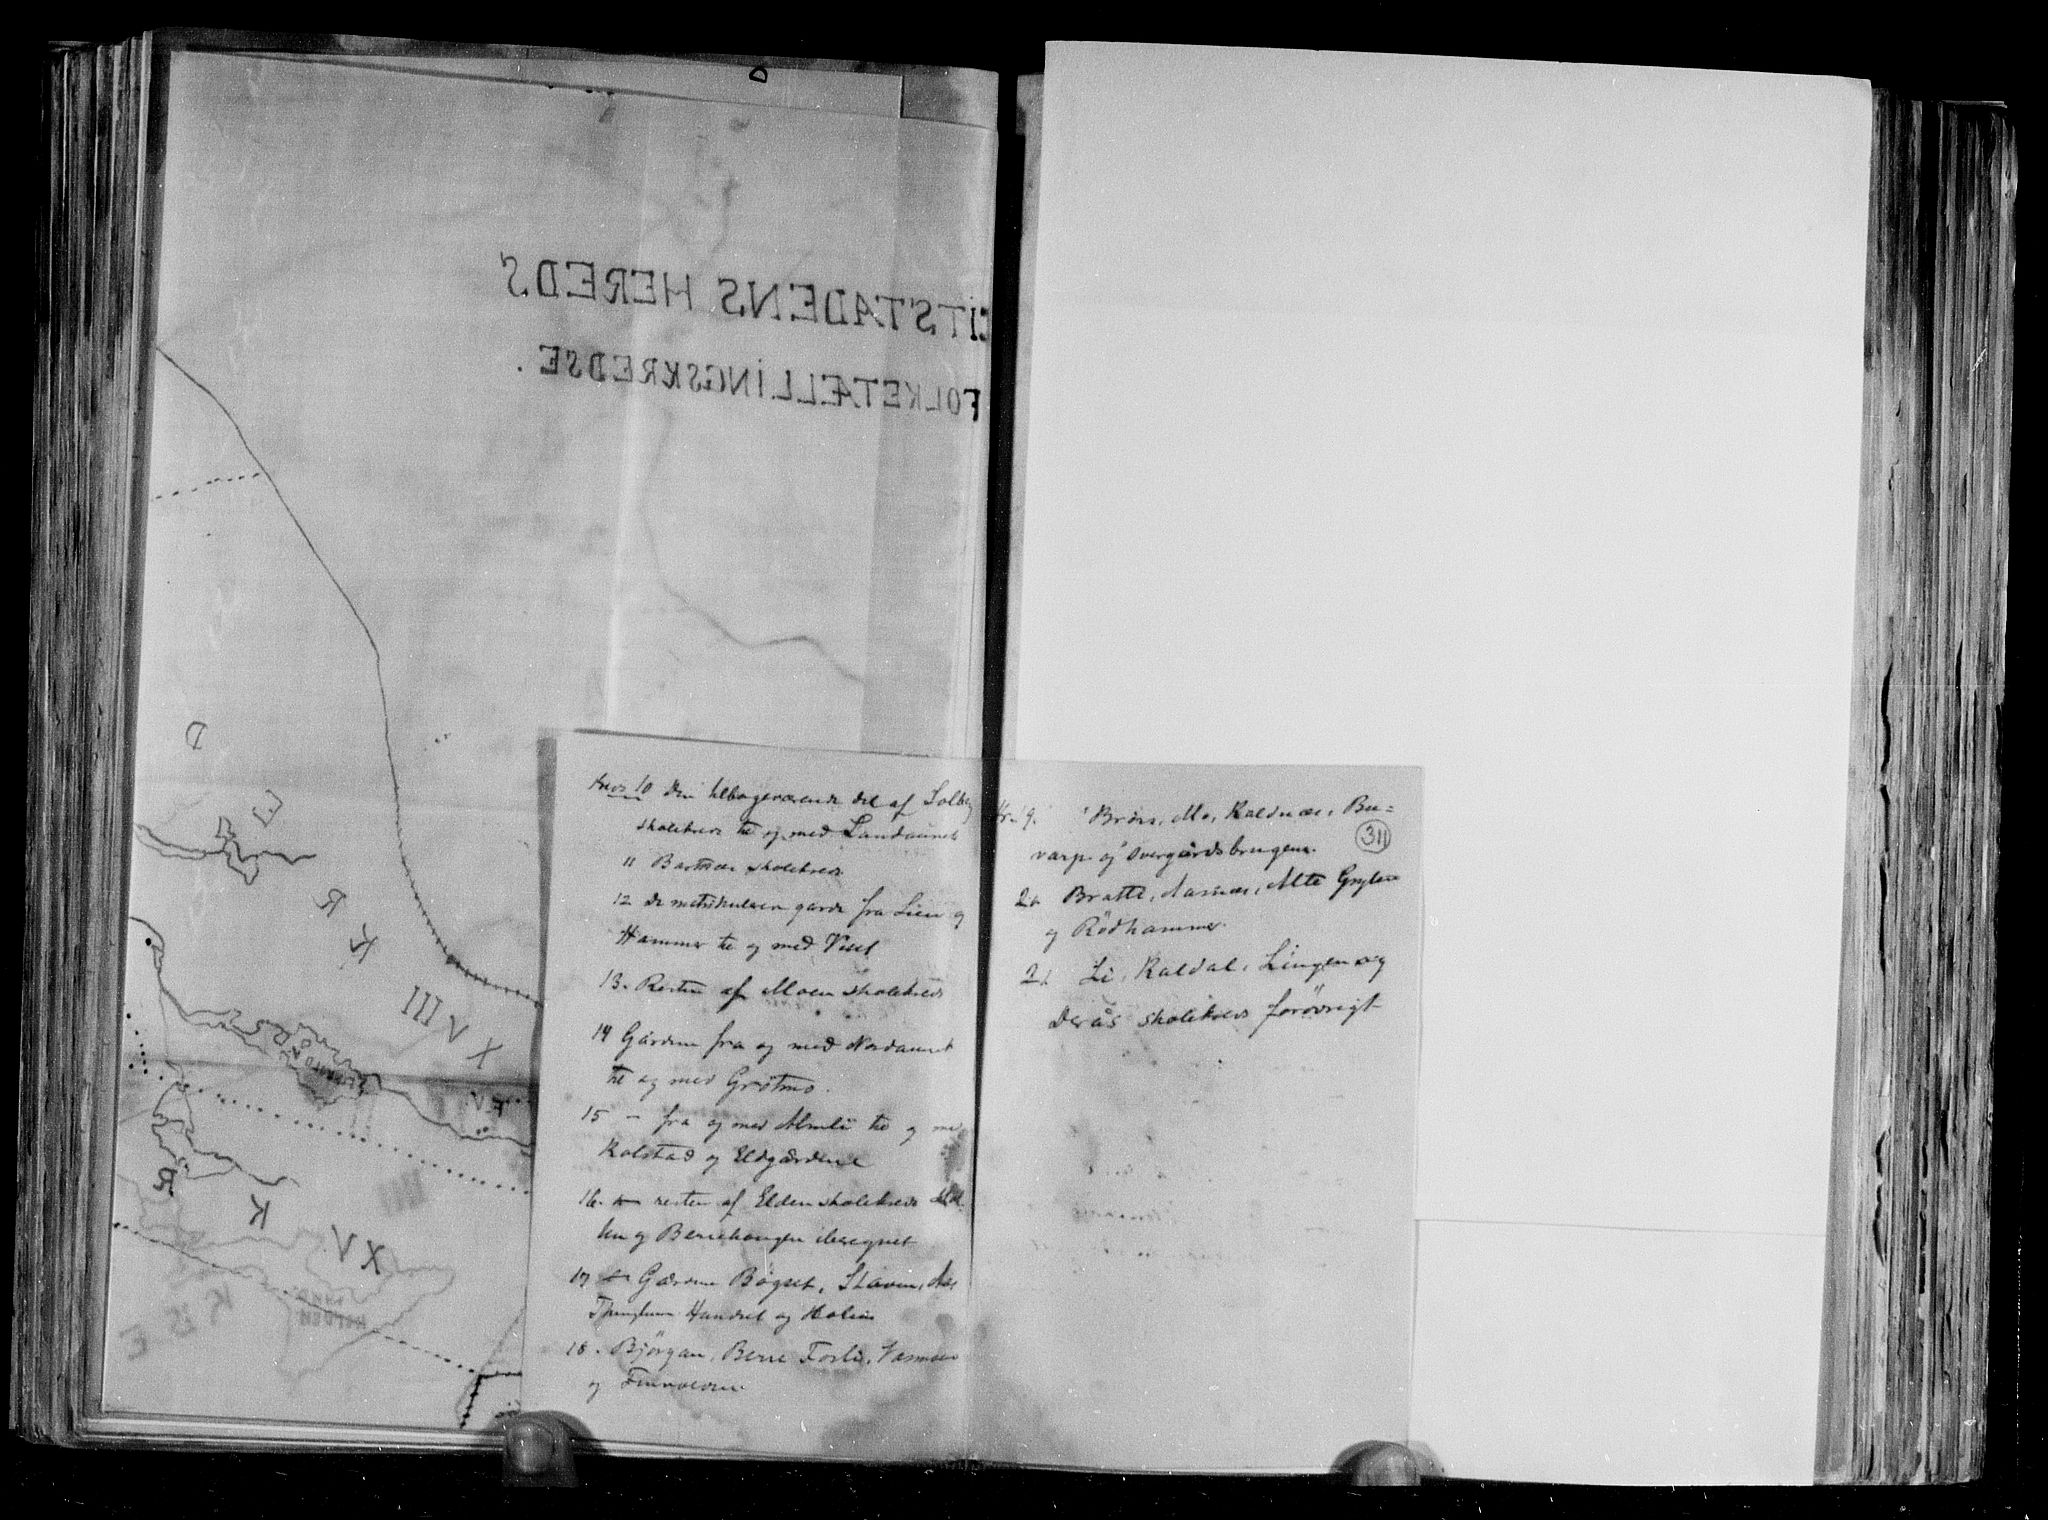 ITSTADENS HEREDS
FOLKETÆLLINGSKREDSE.
D
E
R
K
XVIII
XV
K
R
Kreds 10 den tilbageværende del af Solberg
skolekreds til og med Landaunet
11 Bartnæs skolekreds
12 de matrikulerede gårde fra Lien og
Hammer til og med Vist
13. Resten af Moen skolekreds
14 Gårdene fra og med Nordaunet
til og med Grötmo.
15 – fra og med Almli til og med
Kolstad og Eldgårdene
16. resten af Elden skolekreds
og Benehaugen iberegnet
17 Gårdene Bögset, Staven,
Handsel og Holien
18. Bjórgan, Berre Forli,
og Finvolden.
Kr. 9. Bröss, Mo, Kaldnæs, Bu=
varp og Overgårdsbrugene.
311
20 Bratli, Aasnæs, Alte
og Rödhammer.
21 Li, Kaldal, Lingen og
Derås skolekreds forövrigt